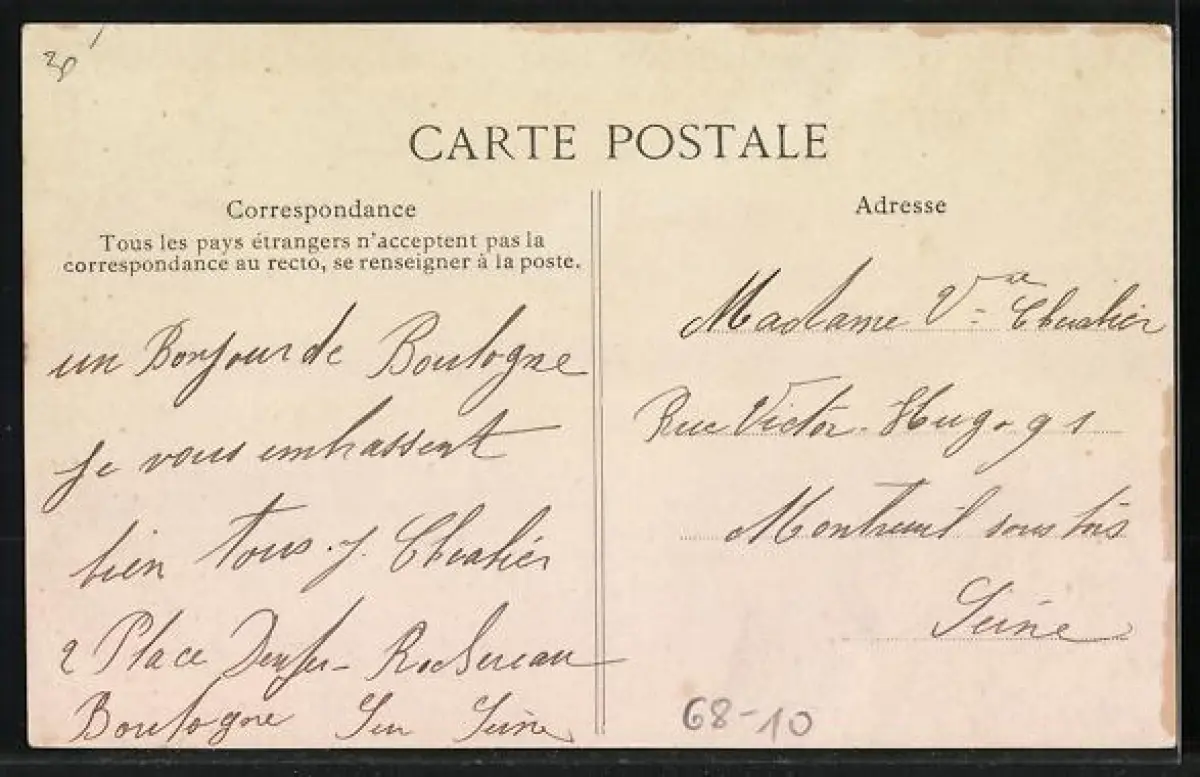 CARTE POSTALE
Correspondance
Tous les pays étrangers n'acceptent pas la
correspondance au recto, se renseigner à la poste.
un Bonjour de Boulogne
je vous embrassent
bien tous. J. Chevalier
2 Place Denfer-Rochereau
Boulogne Sur Seine
Adresse
Madame Vve Chevalier
Rue Victor Hugo 91
Montreuil sous bois
Seine
68-10